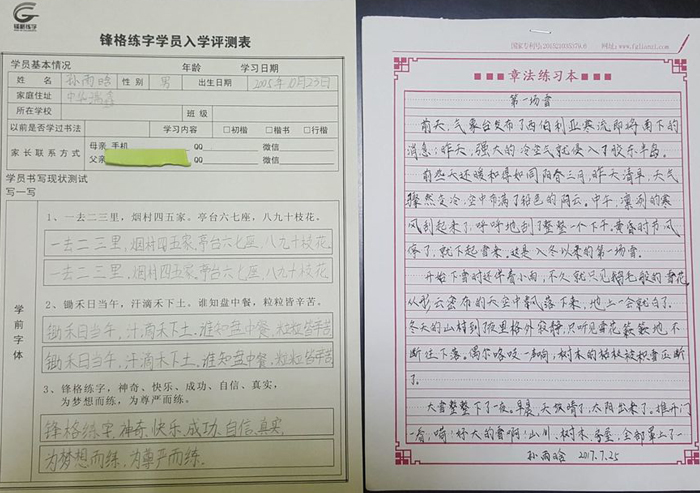 锋格练字
锋格练字学员入学评测表
学员基本情况 年龄 学习日期
姓名 孙雨晗 性别 男 出生日期 2005年10月23日
家庭住址
所在学校 班级
以前是否学过书法 学习内容 □初楷 □楷书 □行楷
家长联系方式
母亲:手机 QQ 微信
父亲: QQ 微信
学员书写现状测试
写一写
学前字体
1、一去二三里,烟村四五家。亭台六七座,八九十枝花。
一去二三里,烟村四五家,亭台六七座,八九十枝花。
一去二三里,烟村四五家,亭台六七座,八九十枝花
2、锄禾日当午,汗滴禾下土。谁知盘中餐,粒粒皆辛苦。
锄禾日当午,汗滴禾下土,谁知盘中餐,粒粒皆辛苦
锄禾日当午,汗滴禾下土,谁知盘中餐,粒粒皆辛苦
3、锋格练字,神奇、快乐、成功、自信、真实,
为梦想而练,为尊严而练。
锋格练字,神奇、快乐、成功、自信、真实,
为梦想而练,为尊严而练。
章法练习本
第一场雪
前天,气象台发布了西伯利亚寒流即将南下的
消息;昨天,强大的冷空气就侵入了胶东半岛。
前些天还暖和得如同阳春三月,昨天清早,天气
骤然变冷,空中布满了铅色的阴云。中午,凛冽的寒
风刮起来了,呼呼地刮了整整一个下午。黄昏时节风
停了,就下起雪来。这是入冬以来的第一场雪。
开始下雪时还伴着小雨,不久就只见鹅毛般的雪花,
从彤云密布的天空中飘落下来,地上一会就白了。
冬天的山村到夜里格外寂静,只听见雪花簌簌地不
断往下落。偶尔咯吱一声响,树木的枯枝被积雪压断
了。
大雪整整下了一夜。早晨,天放晴了,太阳出来了。推开门
一看,嗬!好大的雪啊!山川、树木、房屋,全部罩上了一
孙雨晗 2017.7.25